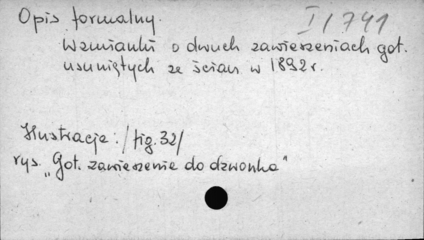 Opis formalny.
I/741
Wzmianki o dwuch zawieszeniach got.
usuniętych ze ścian w 1892 r.
Ilustracje: /fig. 32/
rys. „Got. zawieszenie do dzwonka"